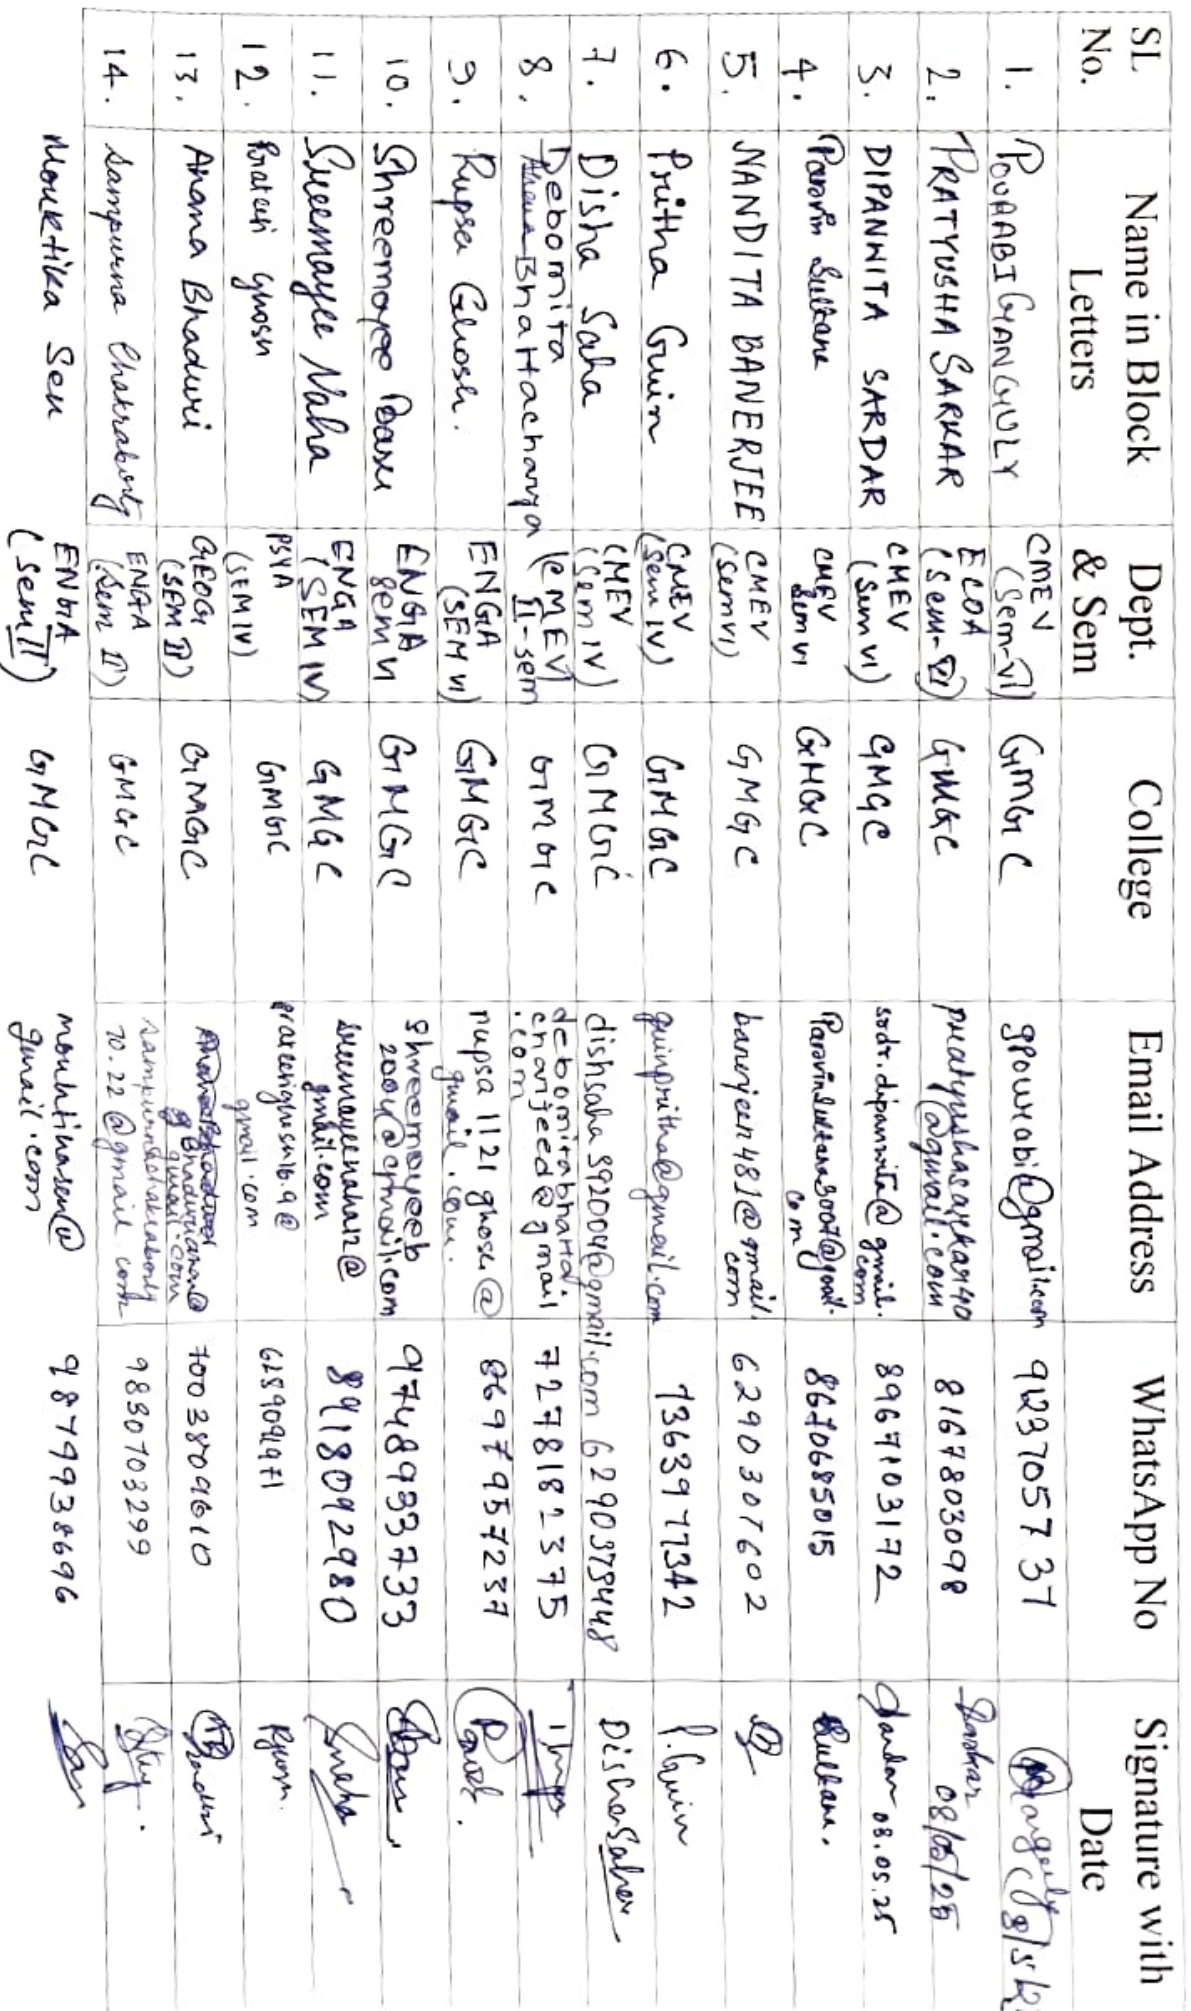 SL No. Name in Block Letters Dept. & Sem College Email Address WhatsApp No Signature with Date
1. POUAABI GYANGULY CMEV (Sem-VI) GMGC gpourabi@gmail.com 9123705737
2. PRATYUSHA SARKAR ECOA (Sem-VI) GMGC pratyushasarkar40@gmail.com 8167803098 Sarkar 08/05/25
3. DIPANWITA SARDAR CMEV (Sem VI) GMGC sodr.dipanwita@gmail.com 8967103172 Sardar 08.05.25
4. Parvin Sultana CMEV Sem VI GMGC Parvinsultana3007@gmail.com 8670685015 Sultana.
5. NANDITA BANERJEE CMEV (Sem VI) GMGC banerjeen481@gmail.com 6290307602
6. Pritha Guin CMEV (Sem IV) GMGC guinpritha@gmail.com 7363977342 P.Guin
7. Disha Saha CMEV (Sem IV) GMGC dishsaha592004@gmail.com 6290373448 Disha Saha
8. Debomita Bhattacharya (CMEV) II-sem GMGC debomitabhattacharjeed@gmail.com 7278182375
9. Rupsa Ghosh. ENGA (SEM VI) GMGC rupsa1121ghosh@gmail.com. 8697957237
10. Shreemoyee Basu ENGA Sem VI GMGC shreemoyeeb2004@gmail.com 9748933733
11. Sreemayee Naha ENGA (SEM IV) GMGC sreemayeenaha12@gmail.com 8918092980
12. Pratiti Ghosh PSYA (SEM IV) GMGC 6289091971 PGhosh.
13. Anana Bhaduri GEOG (SEM II) GMGC 7003809610
14. Sampurna Chakraborty ENGA (Sem II) GMGC sampurnachakraborty70.22@gmail.com 9830703299
Mouktika Sen ENGA (Sem II) GMGC mouktikasen@gmail.com 9879938696 Sen